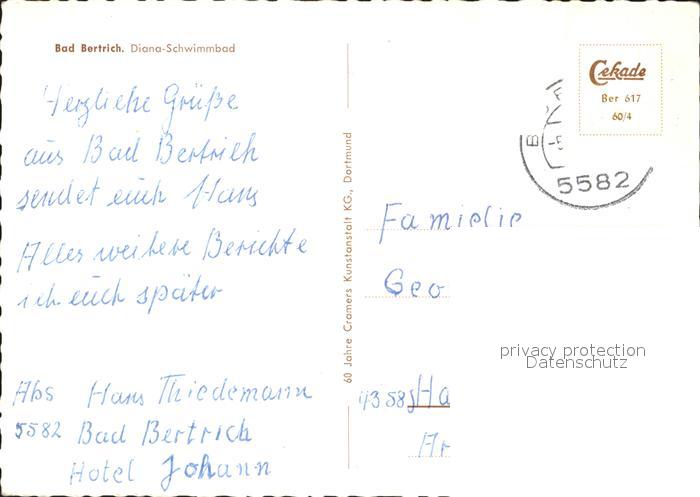 Bad Bertrich. Diana-Schwimmbad
Herzliche Grüße
aus Bad Bertrich
sendet euch Hans
Alles weitere Berichte
ich euch später
Abs Hans Thiedemann
5582 Bad Bertrich
Hotel Johann
60 Jahre Cramers Kunstanstalt KG., Dortmund
Cekade
Ber 617
60/4
5582
Familie
Geo
Ha
privacy protection
Datenschutz